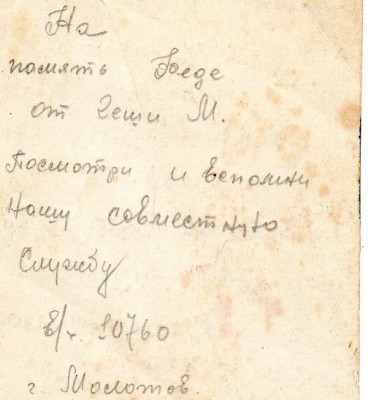 На
память Феде
от Геши М.
Посмотри и вспомни
нашу совместную
Службу
в/ч. 10760
г. Молотов.